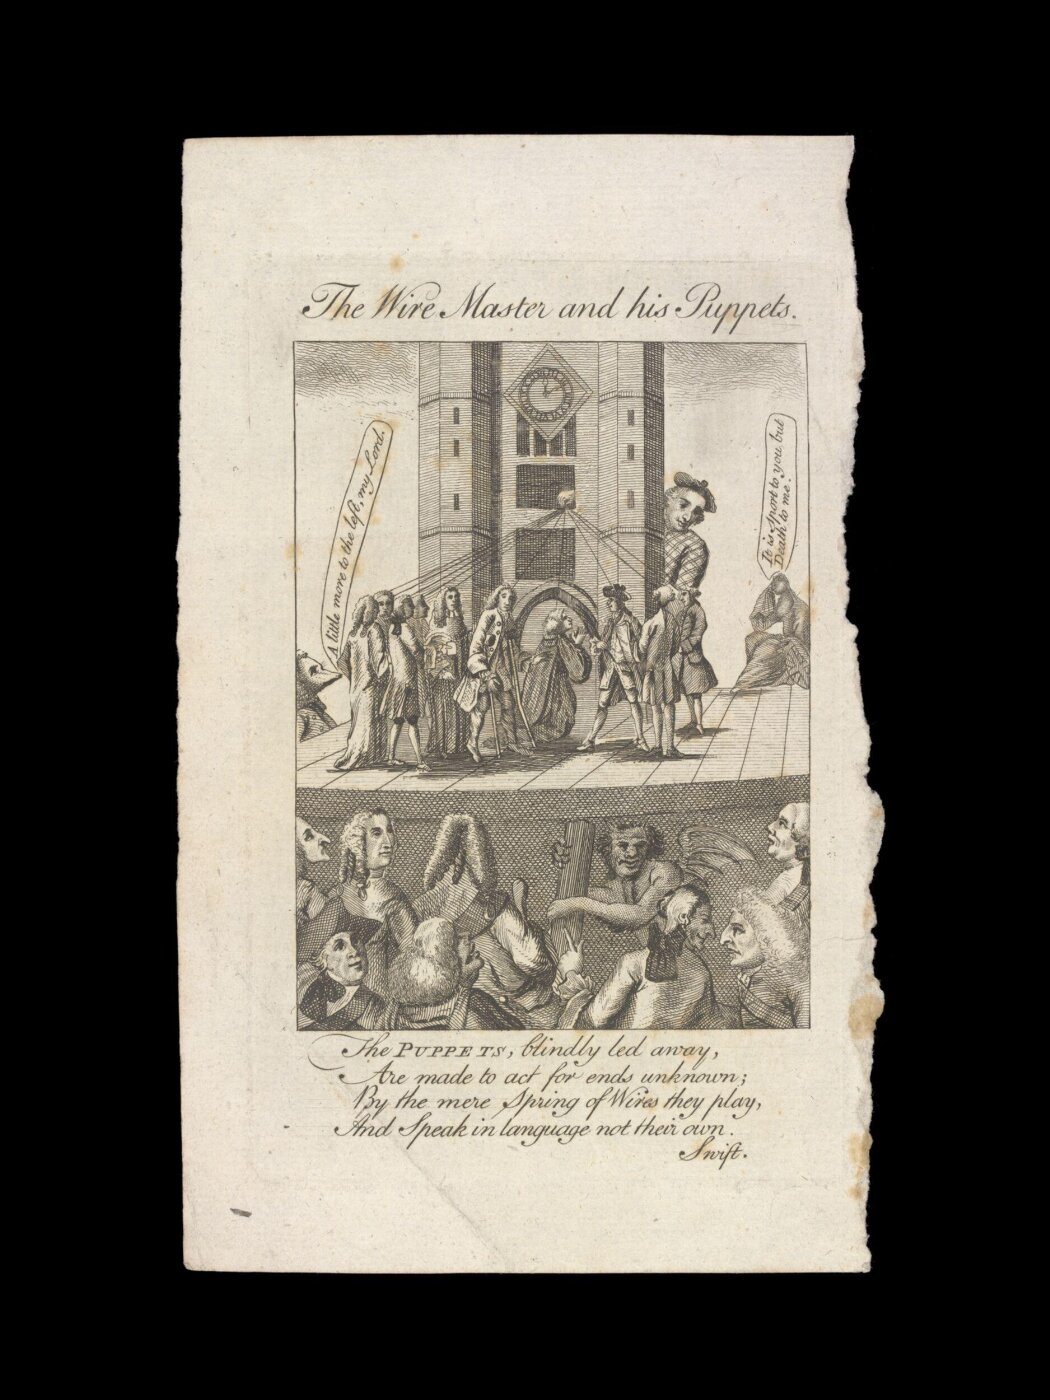 The Wire Master and his Puppets.
A little more to the left, my Lord.
It is Sport to you, but
Death to me.
The PUPPETS, blindly led away,
Are made to act for ends unknown;
By the mere Spring of Wires they play,
And Speak in language not their own.
Swift.